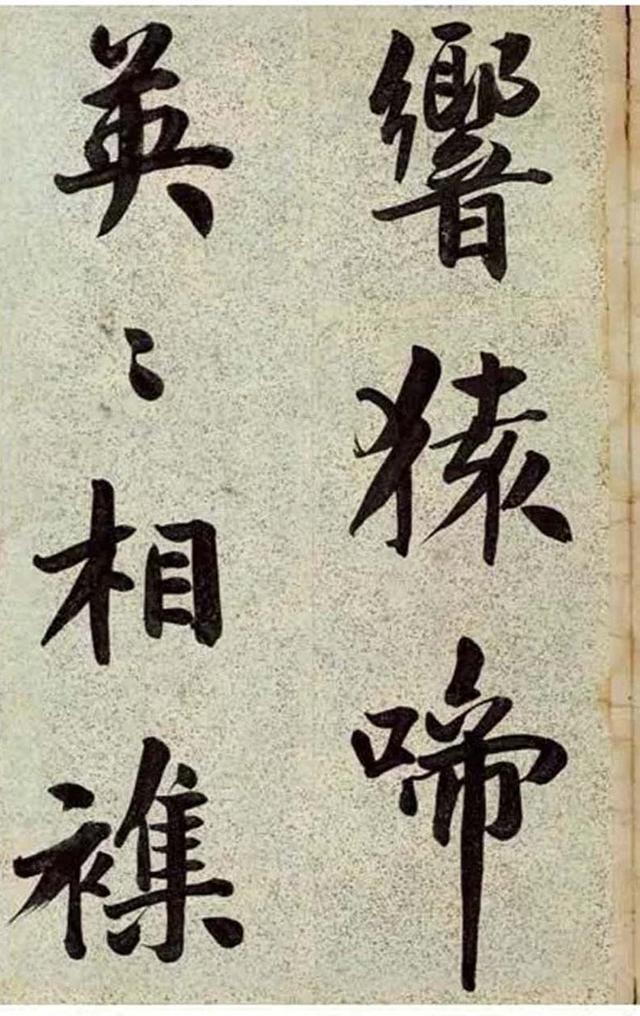 響猿啼
英〻相襍